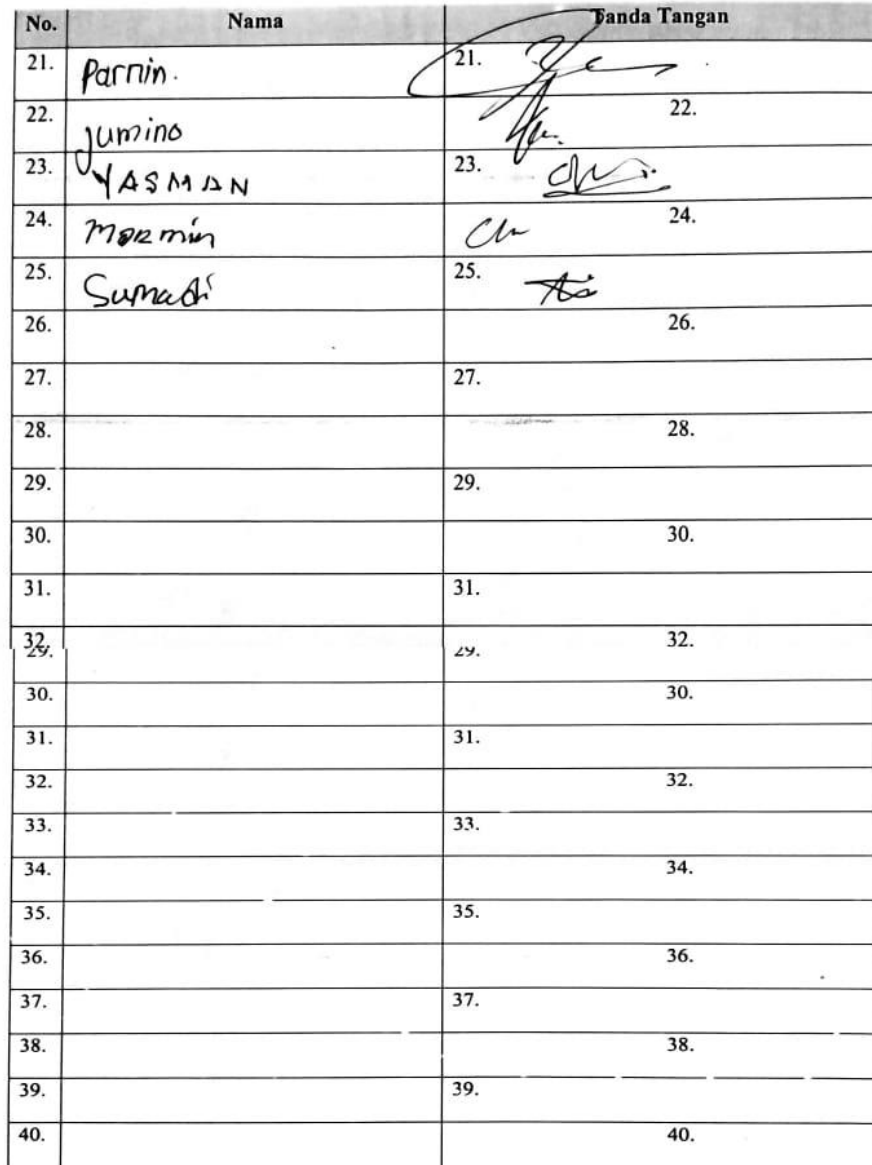 No. Nama Tanda Tangan
21. Parnin. 21.
22. Jumino 22.
23. YASMAN 23.
24. 24.
25. Sumadi 25.
26. 26.
27. 27.
28. 28.
29. 29.
30. 30.
31. 31.
32. 32.
29. 29.
30. 30.
31. 31.
32. 32.
33. 33.
34. 34.
35. 35.
36. 36.
37. 37.
38. 38.
39. 39.
40. 40.